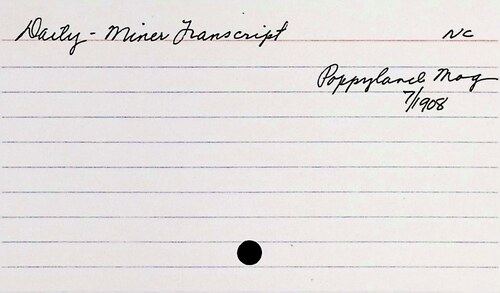 Daily - Miner Transcript NC
Poppyland Mag
7/1908